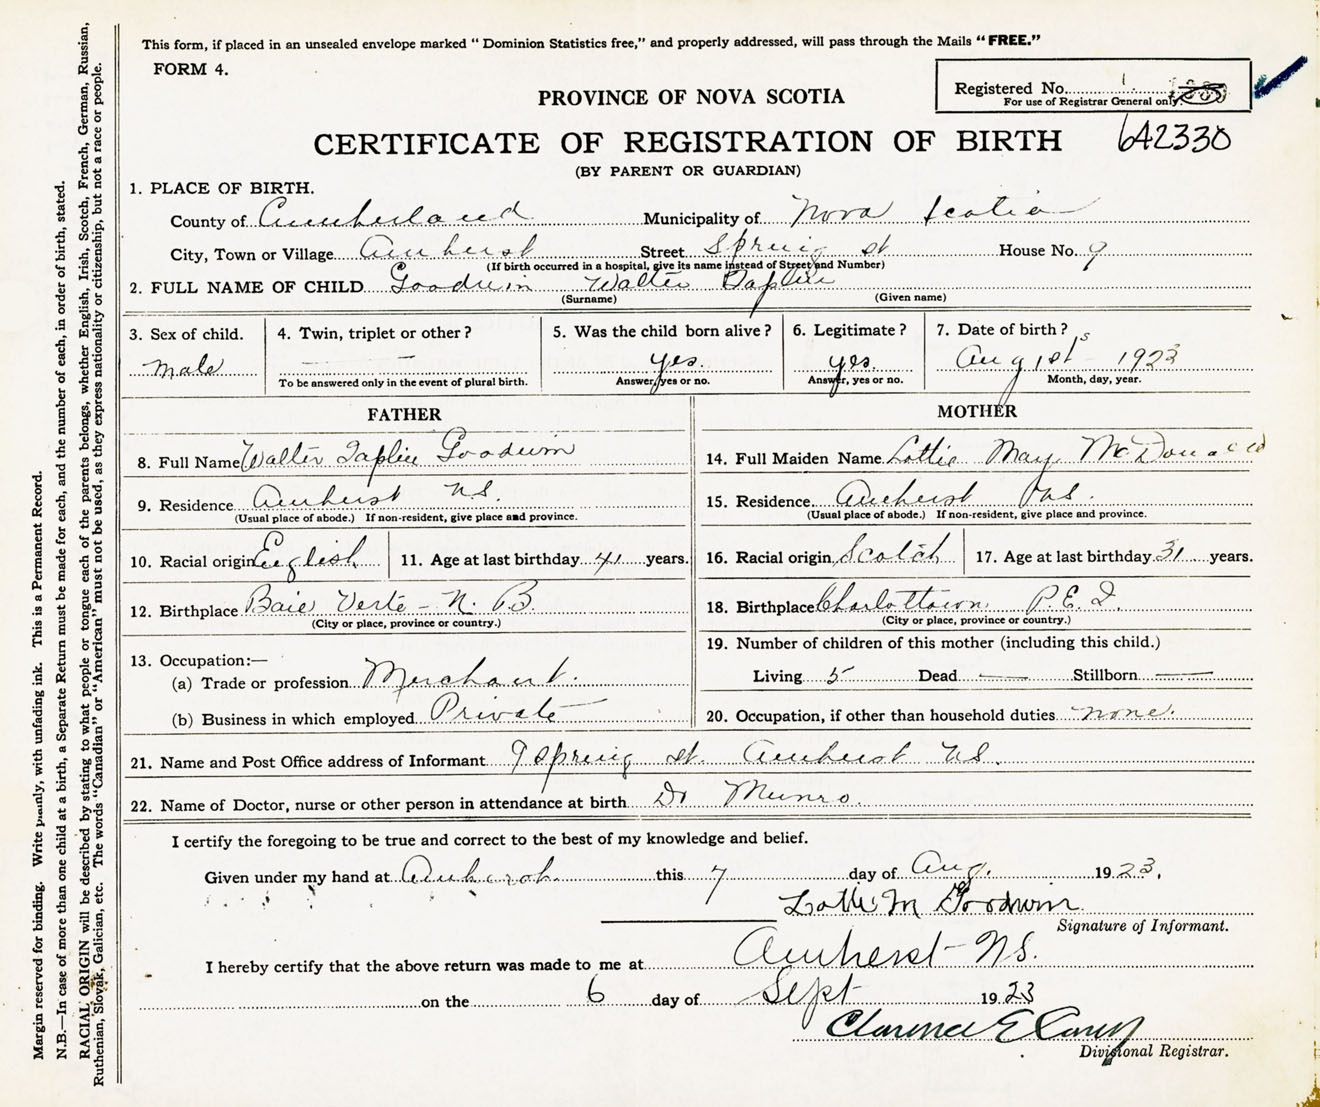 This form, if placed in an unsealed envelope marked "Dominion Statistics free," and properly addressed, will pass through the Mails "FREE."
FORM 4.
Registered No. 1
For use of Registrar General only
PROVINCE OF NOVA SCOTIA
CERTIFICATE OF REGISTRATION OF BIRTH 642330
(BY PARENT OR GUARDIAN)
1. PLACE OF BIRTH.
County of Cumberland Municipality of Nova Scotia
City, Town or Village Amherst Street Spring st House No. 9
(If birth occurred in a hospital, give its name instead of Street and Number)
2. FULL NAME OF CHILD Goodwin Walter Taplin
(Surname) (Given name)
3. Sex of child. 4. Twin, triplet or other? 5. Was the child born alive? 6. Legitimate? 7. Date of birth?
male — yes. yes. Aug 1st 1923
To be answered only in the event of plural birth. Answer, yes or no. Answer, yes or no. Month, day, year.
FATHER MOTHER
8. Full Name Walter Taplin Goodwin 14. Full Maiden Name Lottie May McDonald
9. Residence Amherst N.S. 15. Residence Amherst N.S.
(Usual place of abode.) If non-resident, give place and province. (Usual place of abode.) If non-resident, give place and province.
10. Racial origin English 11. Age at last birthday 41 years. 16. Racial origin Scotch 17. Age at last birthday 31 years.
12. Birthplace Baie Verte - N. B. 18. Birthplace Charlottown P.E.I.
(City or place, province or country.) (City or place, province or country.)
13. Occupation:— 19. Number of children of this mother (including this child.)
(a) Trade or profession Merchant. Living 5 Dead — Stillborn —
(b) Business in which employed Private 20. Occupation, if other than household duties none.
21. Name and Post Office address of Informant 9 Spring st. Amherst N.S.
22. Name of Doctor, nurse or other person in attendance at birth Dr Munro.
I certify the foregoing to be true and correct to the best of my knowledge and belief.
Given under my hand at Amherst this 7 day of Aug. 1923,
Lottie M Goodwin
Signature of Informant.
I hereby certify that the above return was made to me at Amherst N.S.
on the 6 day of Sept 1923
Clarence E
Divisional Registrar.
Margin reserved for binding. Write plainly, with unfading ink. This is a Permanent Record.
N.B.—In case of more than one child at a birth, a Separate Return must be made for each, and the number of each, in order of birth, stated.
RACIAL ORIGIN will be described by stating to what people or tongue each of the parents belongs, whether English, Irish, Scotch, French, German, Russian,
Ruthenian, Slovak, Galician, etc. The words "Canadian" or "American" must not be used, as they express nationality or citizenship, but not a race or people.